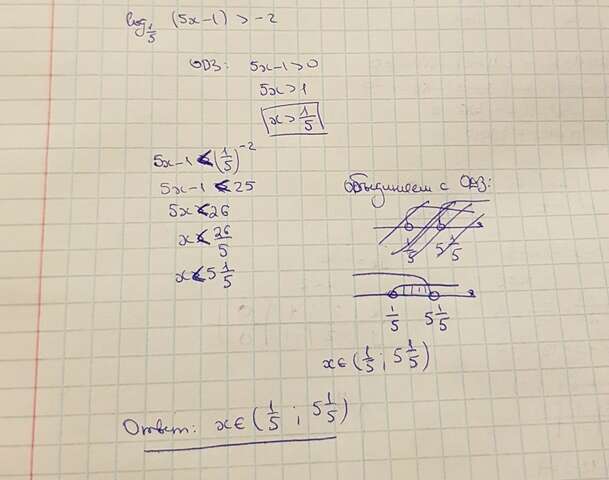 log_{1/5} (5x-1) > -2
ОДЗ: 5x-1>0
5x>1
x>1/5
5x-1<(1/5)^{-2}
5x-1<25
5x<26
x<26/5
x<5 1/5
Объединяем с ОДЗ:
1/5 5 1/5
1/5 5 1/5
x∈(1/5; 5 1/5)
Ответ: x∈(1/5; 5 1/5)